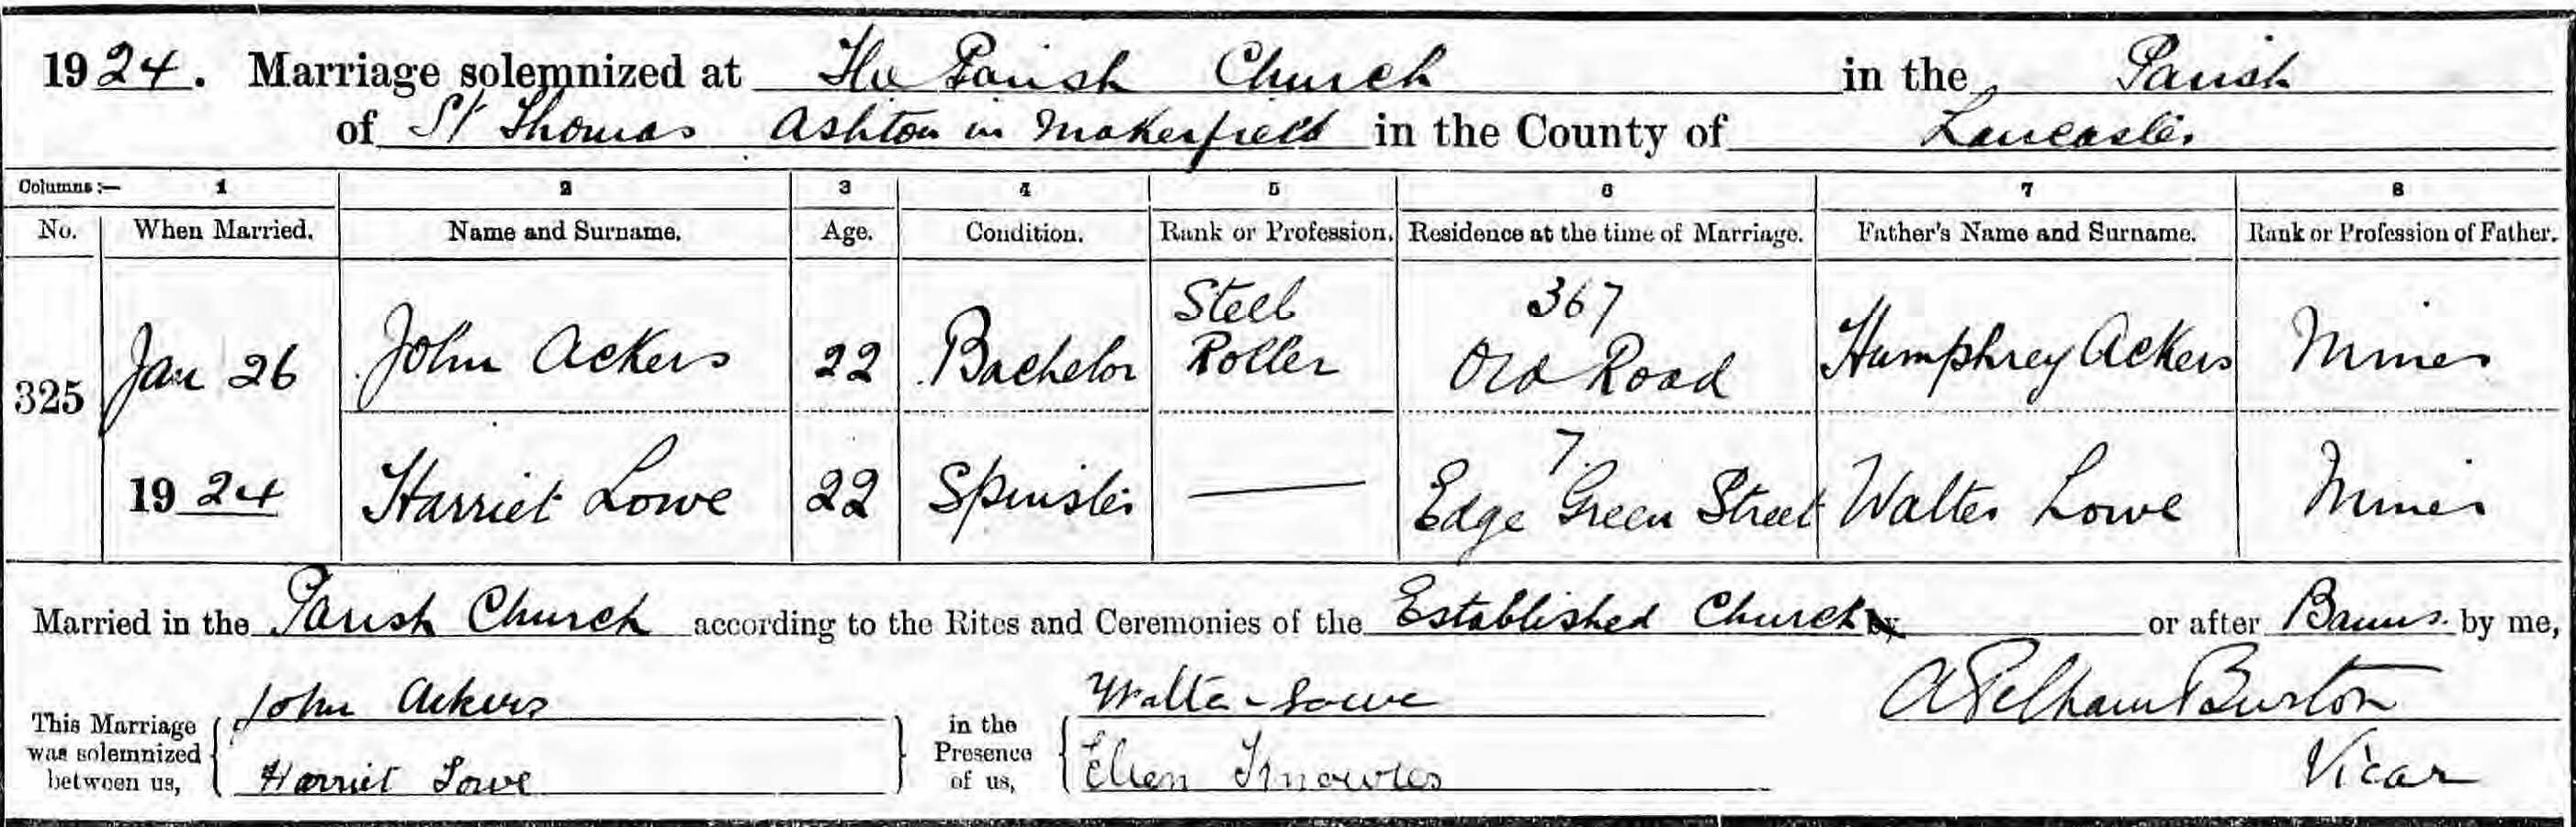 1924. Marriage solemnized at The Parish Church in the Parish
of St Thomas Ashton in Makerfield in the County of Lancaster
Columns:— 1 2 3 4 5 6 7 8
No. When Married. Name and Surname. Age. Condition. Rank or Profession. Residence at the time of Marriage. Father's Name and Surname. Rank or Profession of Father.
325 Jan 26 John Ackers 22 Bachelor Steel Roller 367 Old Road Humphrey Ackers Miner
1924 Harriet Lowe 22 Spinster — 7. Edge Green Street Walter Lowe Miner
Married in the Parish Church according to the Rites and Ceremonies of the Established Church by or after Banns. by me,
This Marriage was solemnized between us, John Ackers in the Presence of us, Walter Lowe A Pelham Burton
Harriet Lowe Ellen Knowles Vicar